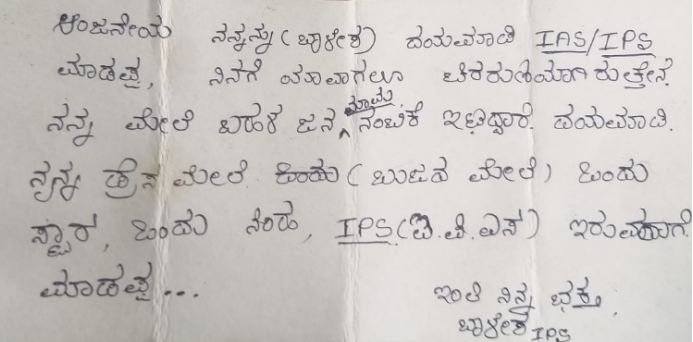 ಆಂಜನೇಯ ನನ್ನನ್ನು (ಬಾಳೇಶ) ದಯಮಾಡಿ IAS/IPS
ಮಾಡಪ್ಪ, ನಿನಗೆ ಯಾವಾಗಲೂ ಚಿರಋಣಿಯಾಗಿರುತ್ತೇನೆ.
ನನ್ನ ಮೇಲೆ ಬಹಳ ಜನ ನಂಬಿಕೆ ಇಟ್ಟಿದ್ದಾರೆ. ದಯಮಾಡಿ.
ನನ್ನ ಡ್ರೆಸ್ ಮೇಲೆ ಒಂದು (ಬುಜದ ಮೇಲೆ) ಒಂದು
ಸ್ಟಾರ, ಒಂದು ಸಿಂಹ, IPS (ಐ.ಪಿ.ಎಸ) ಇರುವಹಾಗೆ
ಮಾಡಪ್ಪ...
ಇಂತಿ ನಿನ್ನ ಭಕ್ತ
ಬಾಳೇಶ IPS